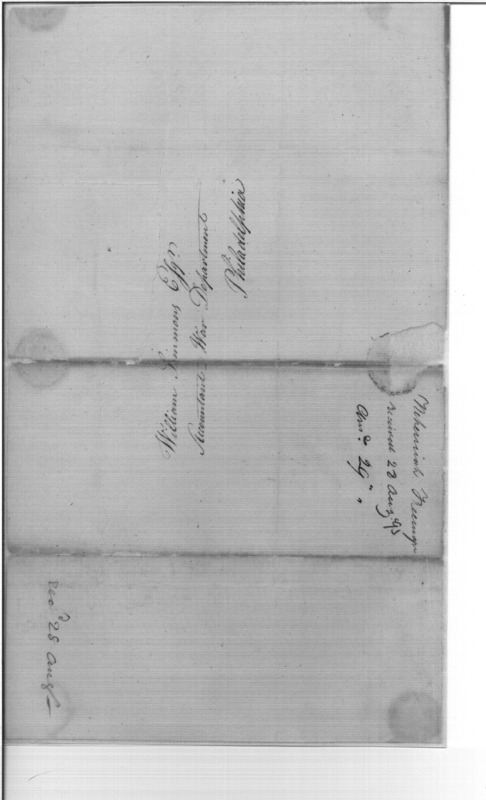 William Simmons Esqr
Accountant War Department
Philadelphia
Nehemiah Freeman
received 28 Aug 95
Ansd 29
Recd 28 Aug